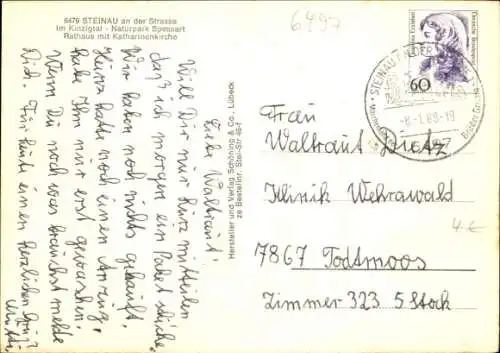 6497
6479 STEINAU an der Strasse
Im Kinzigtal - Naturpark Spessart
Rathaus mit Katharinenkirche
Liebe Waltraut!
Will Dir nur kurz mitteilen
daß ich morgen ein Paket schicke.
Wir haben noch nichts gekauft.
Heinz hatte noch einen Anzug,
habe Ihn nur erst gewaschen.
Wenn Du noch was brauchst melde
Dich. Für heute einen herzlichen Gruß
Mutti
Hersteller und Verlag Schöning & Co., Lübeck
Bestellnr. Stei-Str-45-f
Deutsche Bundespost
60
STEINAU AN DER
-8.-1.88-19
Brüder Grimm
Frau
Waltraut Dietz
Klinik Wehrawald
7867 Todtmoos
Zimmer 323 5 Stock
4 €